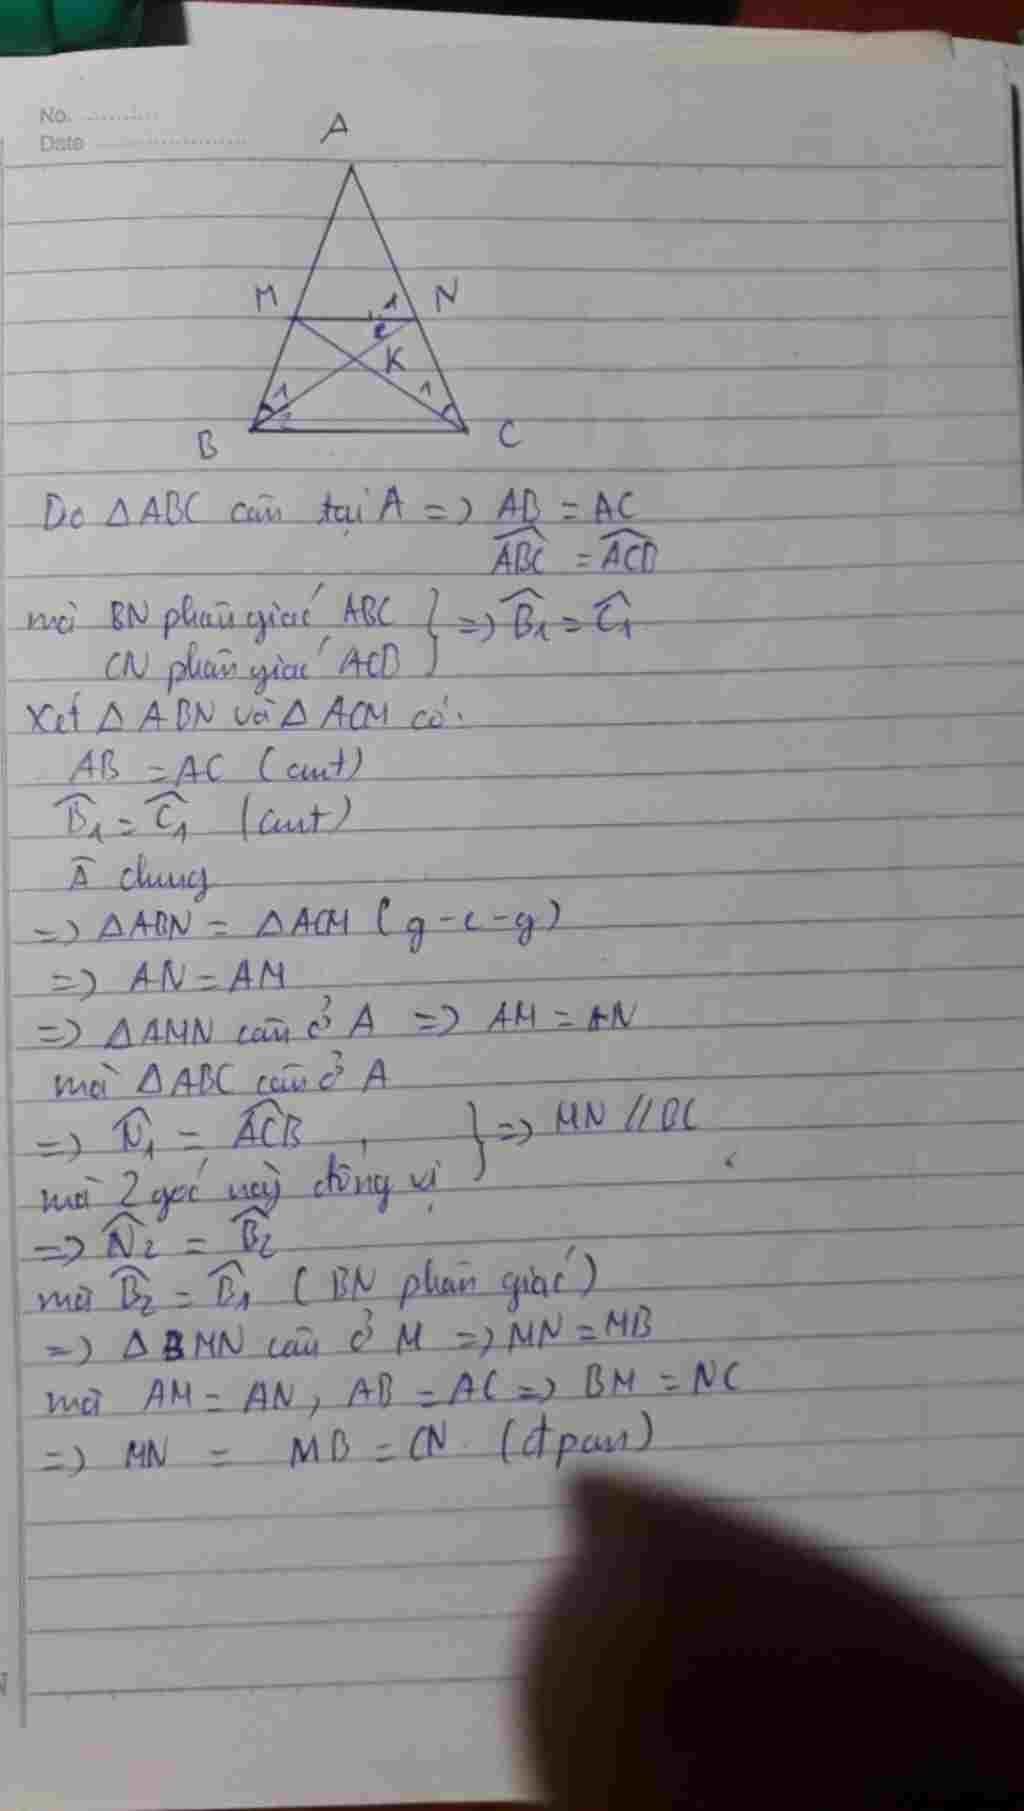 No. ............
Date ........................
A
M
1
N
2
K
1
1
2
B
C
Do Δ ABC cân tại A => AB = AC
ABC = ACB
mà BN phân giác ABC } => B1 = C1
CN phân giác ACB
Xét Δ ABN và Δ ACM có:
AB = AC (cmt)
B1 = C1 (cmt)
A chung
=> ΔABN = ΔACM (g-c-g)
=> AN = AM
=> ΔAMN cân ở A => AM = AN
mà ΔABC cân ở A
=> N1 = ACB } => MN // BC
mà 2 góc này đồng vị
=> N2 = B2
mà B2 = B1 (BN phân giác)
=> Δ BMN cân ở M => MN = MB
mà AM = AN, AB = AC => BM = NC
=> MN = MB = CN (đpcm)